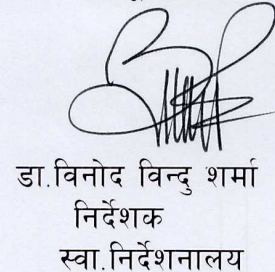 डा.विनोद विन्दु शर्मा
निर्देशक
स्वा.निर्देशनालय